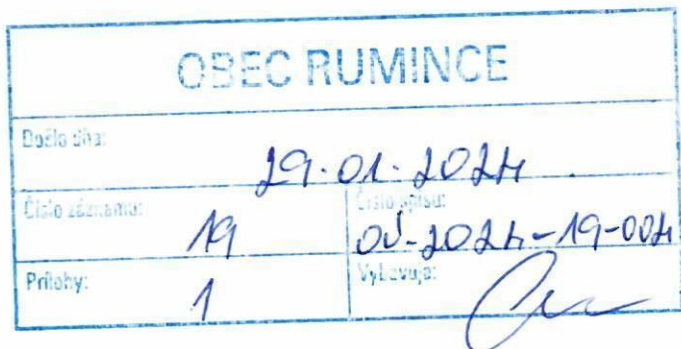 OBEC RUMINCE
Došlo dňa:
29.01.2024
Číslo záznamu:
19
Číslo spisu:
OÚ-2024-19-004
Prílohy:
1
Vybavuje: